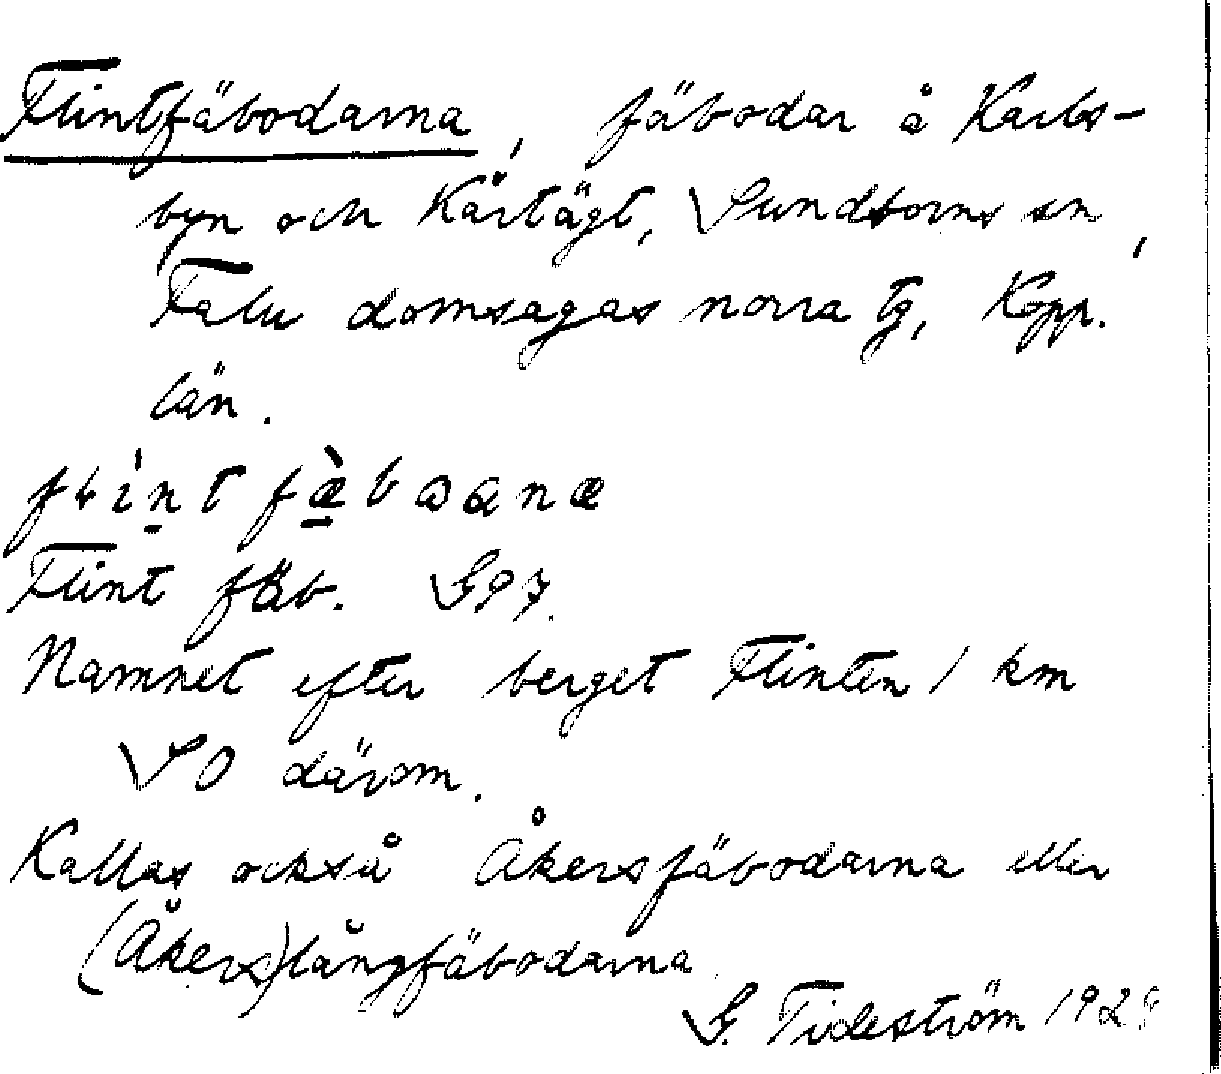 Flintfäbodarna, fäbodar å Karls-
byn och Kårtägt, Sundborns sn,
Falu domsagas norra tg, Kopp.
län.
Flint fäb. G97.
Namnet efter berget Flinten 1 km
SO därom.
Kallas också Åkersfäbodarna eller
(Åkers)långfäbodarna
G. Tideström 1928